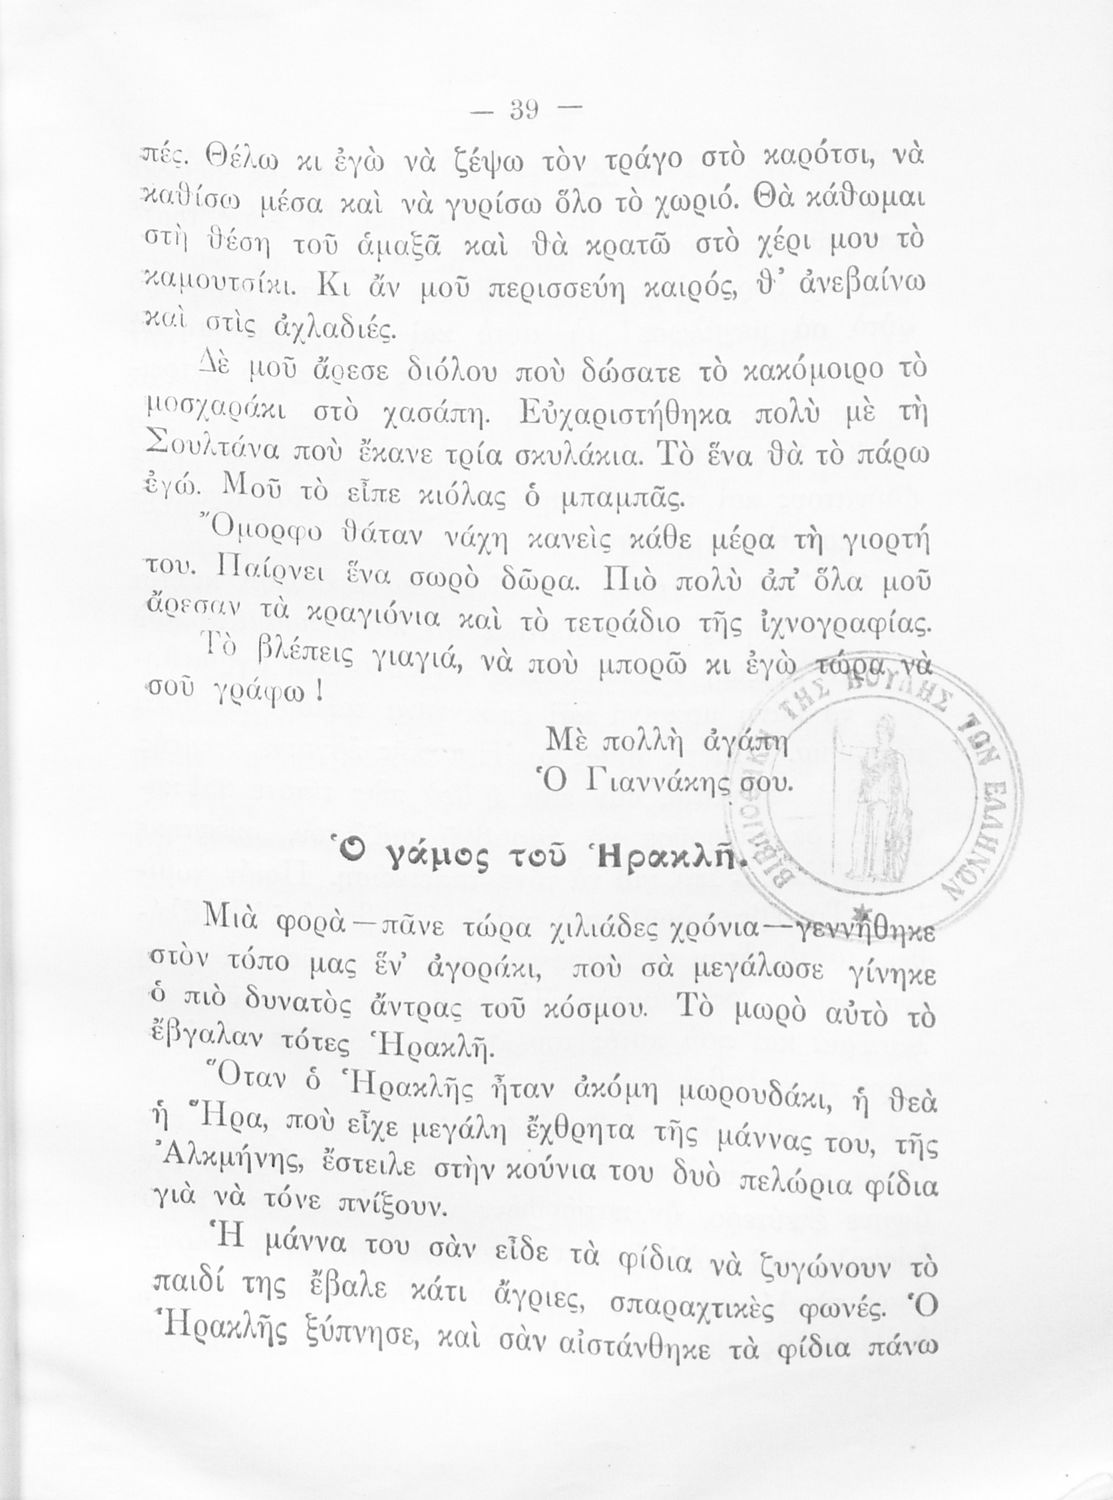 — 39 —
πές. Θέλω κι ἐγὼ νὰ ζέψω τὸν τράγο στὸ καρότσι, νὰ
καθίσω μέσα καὶ νὰ γυρίσω ὅλο τὸ χωριό. Θὰ κάθωμαι
στὴ θέση τοῦ ἁμαξᾶ καὶ θὰ κρατῶ στὸ χέρι μου τὸ
καμουτσίκι. Κι ἄν μοῦ περισσεύη καιρός, θ’ ἀνεβαίνω
καὶ στὶς ἀχλαδιές.
Δὲ μοῦ ἄρεσε διόλου ποὺ δώσατε τὸ κακόμοιρο τὸ
μοσχαράκι στὸ χασάπη. Εὐχαριστήθηκα πολὺ μὲ τὴ
Σουλτάνα ποὺ ἔκανε τρία σκυλάκια. Τὸ ἕνα θὰ τὸ πάρω
ἐγώ. Μοῦ τὸ εἶπε κιόλας ὁ μπαμπᾶς.
Ὄμορφο θάταν νάχη κανεὶς κάθε μέρα τὴ γιορτή
του. Παίρνει ἕνα σωρὸ δῶρα. Πιὸ πολὺ ἀπ’ ὅλα μοῦ
ἄρεσαν τὰ κραγιόνια καὶ τὸ τετράδιο τῆς ἰχνογραφίας.
Τὸ βλέπεις γιαγιά, νὰ ποὺ μπορῶ κι ἐγὼ τώρα νὰ
σοῦ γράφω !
Μὲ πολλὴ ἀγάπη
Ὁ Γιαννάκης σου.
ΒΙΒΛΙΟΘΗΚΗ ΤΗΣ ΒΟΥΛΗΣ ΤΩΝ ΕΛΛΗΝΩΝ
Ὁ γάμος τοῦ Ἡρακλῆ.
Μιὰ φορὰ — πᾶνε τώρα χιλιάδες χρόνια — γεννήθηκε
στὸν τόπο μας ἕν’ ἀγοράκι, ποὺ σὰ μεγάλωσε γίνηκε
ὁ πιὸ δυνατὸς ἄντρας τοῦ κόσμου. Τὸ μωρὸ αὐτὸ τὸ
ἔβγαλαν τότες Ἡρακλῆ.
Ὅταν ὁ Ἡρακλῆς ἦταν ἀκόμη μωρουδάκι, ἡ θεὰ
ἡ Ἥρα, ποὺ εἶχε μεγάλη ἔχθρητα τῆς μάννας του, τῆς
Ἀλκμήνης, ἔστειλε στὴν κούνια του δυὸ πελώρια φίδια
γιὰ νὰ τόνε πνίξουν.
Ἡ μάννα του σὰν εἶδε τὰ φίδια νὰ ζυγώνουν τὸ
παιδί της ἔβαλε κάτι ἄγριες, σπαραχτικὲς φωνές. Ὁ
Ἡρακλῆς ξύπνησε, καὶ σὰν αἰστάνθηκε τὰ φίδια πάνω